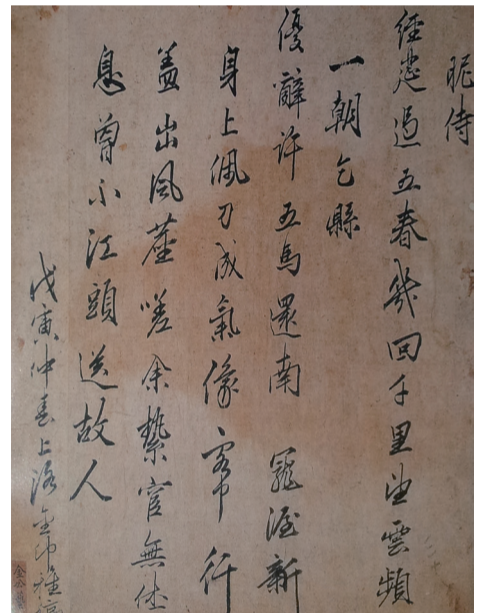 昵侍
經筵過五春幾回千里望雲頻
一朝乞縣
優辭許五馬還南 寵渥新
身上佩刀成氣像 行
盖出風塵嗟余縶官無休
息曾不江頭送故人
戊寅仲春上洛金